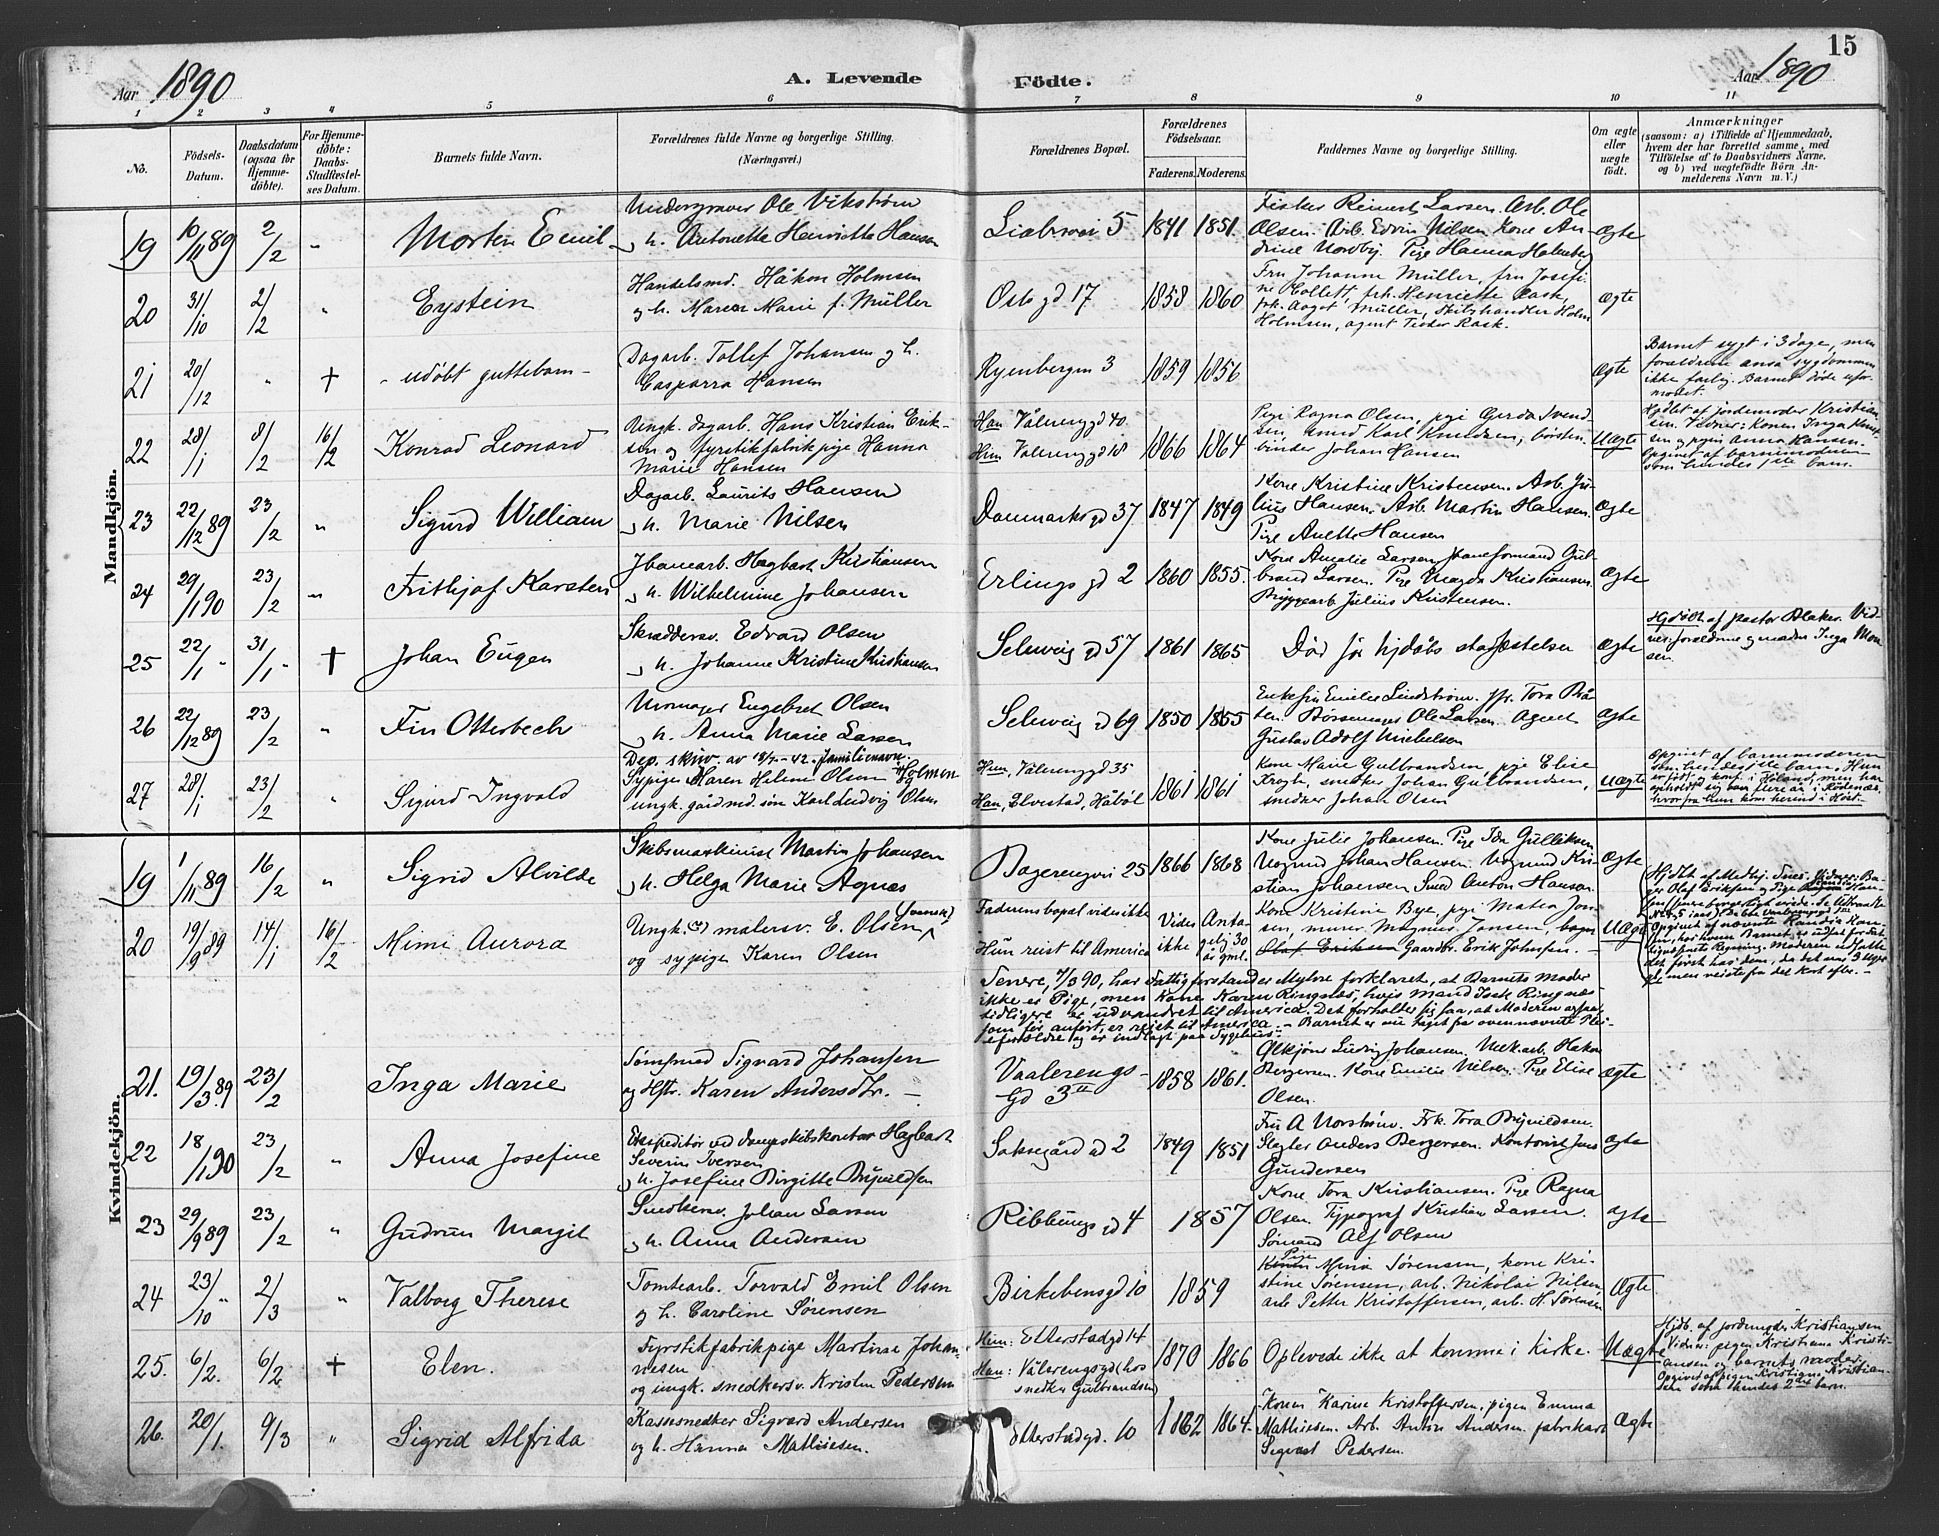 15
Aar 1890
A. Levende Födte.
Aar 1890
1 2 3 4 5 6 7 8 9 10 11
No.
Födsels-Datum.
Daabsdatum (ogsaa for Hjemme-döbte).
For Hjemme-döbte: Daabs-Stadfæstel-ses Datum.
Barnets fulde Navn.
Forældrenes fulde Navne og borgerlige Stilling.
(Næringsvei.)
Forældrenes Bopæl.
Forældrenes Födselsaar.
Faderens. Moderens.
Faddernes Navne og borgerlige Stilling.
Om ægte eller uægte födt.
Anmærkninger
(saasom: a) i Tilfælde af Hjemmedaab, hvem der har forrettet samme, med Tilföielse af to Daabsvidners Navne, og b) ved uægtefödte Börn An-melderens Navn m. V.)
Mandkjön.
19 10/11 89 2/2 " Morten Emil
Undergraver Ole Vikström
h. Antonette Henriette Hansen
5 1841 1851.
Fisker Reinert Larsen. Arb. Ole
Olsen. Arb. Edvin Nilsen. Kone An-
drine Nordby. Pige Hanna
Ægte
20 31/10 2/2 " Eystein
Handelsmd. Håkon Holmsen
og h. Maren Marie f. Müller
Oslo gd 17 1858 1860
Fru Johanne Müller, fru Josefi-
ne Collett, frk. Henriette Rask,
frk. Aagot Müller, Skibshandler Holm
Holmsen, agent Fisker Rask.
Ægte
21 20/12 " † - udöbt guttebarn -
Dagarb. Tollef Johansen og h.
Casparra Hansen
Ryenbergen 3 1859 1856
Ægte
Barnet sygt i 3 dage, men
forældrene anså sygdommen
ikke farlig. Barnet døde ufor-
modet.
22 28/1 8/2 16/2 Konrad Leonard
Ungk. dagarb. Hans Kristian Erik-
sen og fyrstikfabrikpige Hanna
Marie Hansen
Han Vålerenggd 40
Hun Vålerenggd 18
1866 1864
Pige Ragna Olsen, pige Gerda Svend-
sen, smed Karl Knudsen, børsten-
binder Johan Hansen
Uægte
Hjdbt af jordemoder Kristian-
sen. Vidner: konen Inga Knut-
sen og pigen Anna Hansen.
Opgivet af barnemoderen
som hendes 1ste barn.
23 22/12 89 23/2 " Sigurd William
Dagarb. Laurits Hansen
h. Marie Nilsen
Danmarks gd 37 1847 1849
Kone Kristine Kristensen. Arb. Ju-
lius Hansen. Arb. Martin Hansen.
Pige Anette Hansen
Ægte
24 29/1 90 23/2 " Frithjof Karsten
Jbanearb. Hagbart Kristiansen
h. Wilhelmine Johansen
Erlings gd 2 1860 1855.
Kone Amalie Larsen Jbaneformand Gul-
brand Larsen. Pige Magda Kristiansen.
Bryggearb. Julius Kristensen.
Ægte
25 22/1 - 31/1 - † Johan Eugen
Skræddersv. Edvard Olsen
h. Johanne Kristine Kristiansen
Selmeig gd 57 1861 1865
Död för hjdåbs stadfæstelse
Ægte
Hjdöbt af pastor Blaker. Vid-
ner: forældrene og madam Inga Mon-
sen.
26 22/12 89 23/2 " Fin Otterbech
Urmager Engebret Olsen
h. Anna Marie Larsen
Selmeig gd 69 1850 1855
Enkefru Emilie Lindström. Jfr. Tora Brå-
ten. Børsemager Ole Larsen. Agent
Gustav Adolf Michelsen
Ægte
27 28/1 23/2 " Sigurd Ingvald
Dep. skriv. av 18/7 - 42. Familienavn:
Sypige Maren Helene Olsen "Holmen"
og ungk. gardmd. søn Karl Ludvig Olsen
Hun, Vålerenggd 35
Han, Elvestad, Håböl
1861 1861
Kone Marie Gulbrandsen, pige Elise
Krogh, snedker Johan Gulbrandsen,
snedker Johan Olsen
Uægte
Opgivet af barnemoderen
som hendes 1ste barn, Hun
er föd og konf. i Höland, men har
opholdt sig bare flere år i Rödenæs,
hvorfra hun kom herind i Höst.
Kvindekjön.
19 1/11 89 16/2 " Sigrid Alvilde
Skibsmaskinist Martin Johansen
h. Helga Marie Agnæs
Dagerengvei 25 1866 1868
Kone Julie Johansen. Pige Ida Gulliksen
Vognmd Johan Hansen. Vognmd Kri-
stian Johansen Smed Anton Hansen
Ægte
20 19/9 89 14/1 16/2 Mimi Aurora
Ungk. malersv. E. Olsen (svensk)
og sypige Karen Olsen
Faderens bopæl vides ikke
Hun reist til America
Vides ikke
Anta-gelig 30 år gml.
Kone Kristine Bye, pige Matea Jon-
sen, murer Magnus Jensen, bager
Olaf Eriksen Gaardbr. Erik Johnsen. -
Uægte
Senere, 7/3 90, har Fattigforstander Myhre forklaret, at Barnets Moder
ikke er Pige, men Kone Karen Ringnæs, hvis Mand Isak Ringnæs
tidligere er udvandret til America. Det forholder sig saa, at Moderen ogsaa,
som för anfört, er reist til America. - Barnet er nu taget fra ovennævnte Plei-
eforældre og er indlagt paa Sygehus.
21. 19/3 89 23/2 Inga Marie
Tömmrmd Sigvard Johansen
og Hstr. Karen Andersdtr. -
Vaalerengs-
Gd 3 II
1858 1861.
Ølkjörer Ludvig Johansen. Mek. arb. Hakon
Bergersen. Kone Emilie Nilsen. Pige Elise
Olsen.
Ægte
22 18/1 90 23/2 " Anna Josefine
Expeditör ved dampskibskontor Hagbart
Severin Iversen
h. Josefine Birgitte Brynildsen
Saxegård gd 2 1849 1851
Fru A Norström. Frk. Tora Brynildsen.
Slagter Anders Bergersen. Kontorist Jens
Gundersen
Ægte
23 29/9 89 23/2 " Gudrun Margit
Snedkersv. Johan Larsen
h. Anna Andersen
Ribbungs gd 4 1857
Kone Tora Kristiansen. Pige Ragna
Olsen. Typograf Kristian Larsen.
Sömand Alf Olsen
Ægte
24 23/10 " 2/3 " Valborg Therese
Tomtearb. Torvald Emil Olsen
og h. Caroline Sörensen
Birkebensgd 10 1859
Pige
Konen Mina Sörensen, kone Kri-
stine Sörensen, arb. Nikolai Nilsen,
arb Petter Kristoffersen, arb. H. Sörensen
Ægte
25. 6/2. 6/2 † Elen.
Fyrstikfabrikpige Martine Johan-
nesen
og ungk. snedkersv. Kristen Pedersen
Hun: Etterstadgd 14
Han: Vålerengsgd (hos
snedker Gulbrandsen)
1870 1866
Oplevede ikke at komme i kirke.
Uægte
Hjdb. af jordemoder Kristiansen
Vidner: pigen Kristiana Kristi-
ansen og barnets moder.
Opgivet af pigen Kristiane Kristian-
sen som hendes 2det barn.
26. 20/1. 9/3 " Sigrid Alfrida
Kassesnedker Sigvard Andersen
og h. Hanna Mathisen.
Etterstadgd. 10 1862 1864.
Konen Karine Kristoffersen, pigen Emma
Mathiesen. Arb. Anton Andersen fabrikarb
Sigvart Pedersen.
Ægte